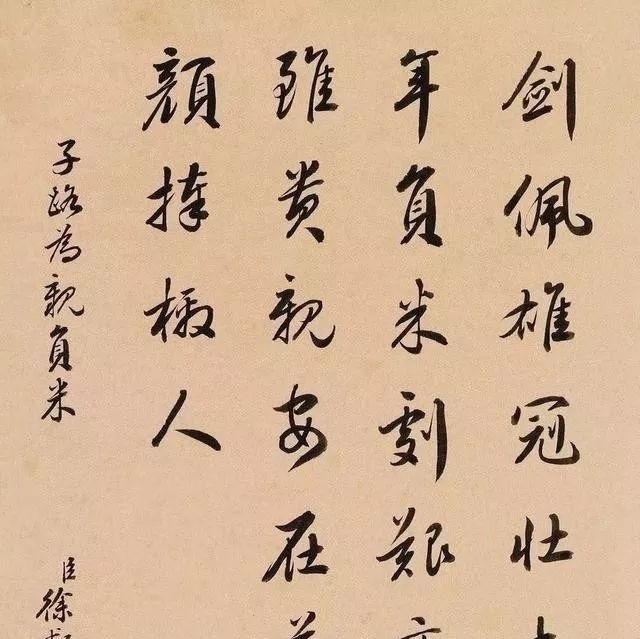 劍佩雄冠壯
年負米劇艱
雖貴親安在
顏捧檄人
子路為親負米
臣徐